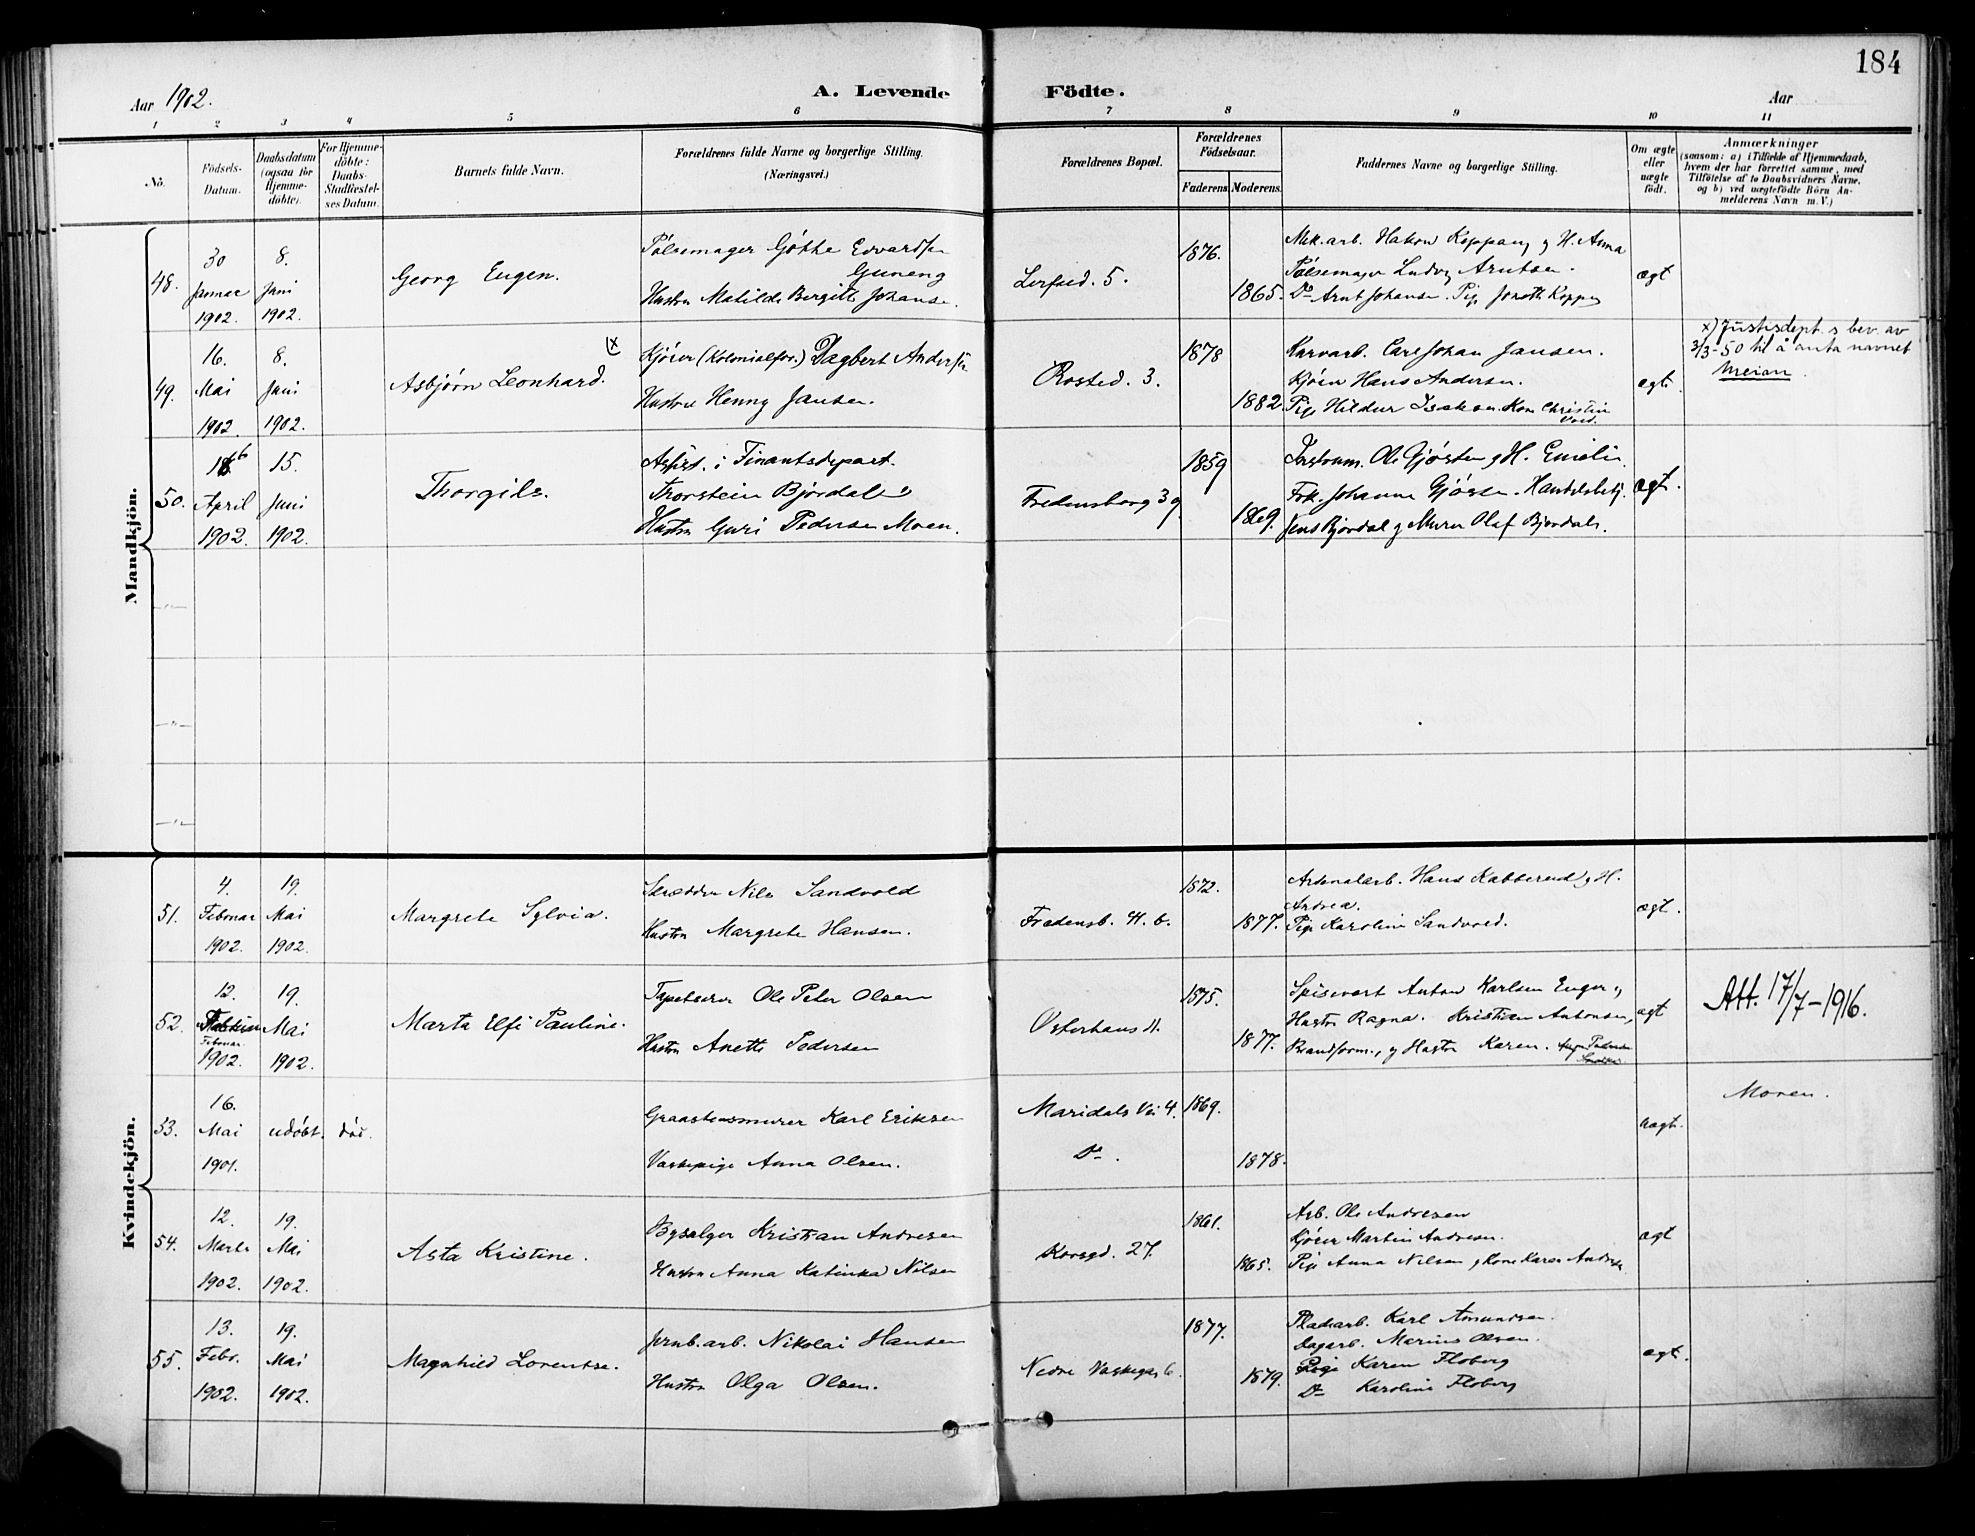 184
Aar 1902.
A. Levende Födte.
Aar
1 2 3 4 5 6 7 8 9 10 11
No.
Födsels-Datum.
Daabsdatum (ogsaa for Hjemme-döbte).
For Hjemme-döbte: Daabs-Stadfæstel-ses Datum.
Barnets fulde Navn.
Forældrenes fulde Navne og borgerlige Stilling.
(Næringsvei.)
Forældrenes Bopæl.
Forældrenes Födselsaar.
Faderens. Moderens.
Faddernes Navne og borgerlige Stilling.
Om ægte eller uægte födt.
Anmærkninger
(saasom: a) i Tilfælde af Hjemmedaab,
hvem der har forrettet samme, med
Tilföielse af to Daabsvidners Navne,
og b) ved uægtefödte Börn An-
melderens Navn m. V.)
Mandkjön.
48.
30 Januar 1902.
8. Juni 1902.
Georg Eugen.
Pølsemager Gøthe Edvardsen
Hustru Matilde Bergitte Johanse.
1876.
1865.
Mek. arb. Hakon Koppang og H. Anna
Pølsemager Ludvig Arntsen.
Do Arnt Johanse. Pige
ægt
49.
16. Mai 1902.
8. Juni 1902.
Asbjørn Leonhard. x)
Kjører (Kolonialfor.) Dagbert Andersen
Hustru Henny Jansen.
Rosted. 3.
1878
1882
Carl Johan Jansen.
Kjører Hans Andersen.
Pige Hildur Isaksen. Kone Christin
ægt.
x) Justisdept.s bev. av
3/3-50 til å anta navnet
Meian.
50.
16 April 1902.
15. Juni 1902.
Thorgils.
Assist. i Finantsdepart.
Thorstein Bjørdal
Hustru Guri Pedersen Moen.
Fredensborg 39
1859
1869.
Ole Gjøsten og H. Emelie.
Frk. Johanne Handelsbetj.
Jens Bjørdal og Murer Olaf Bjørdal.
ægt.
Kvindekjön.
51.
4. Februar 1902.
19. Mai 1902.
Margrete Sylvia.
Skrædder Nils Sandvold
Hustru Margrete Hansen.
Fredensb. 4. b.
1872.
1877.
Arsenalarb. Hans Kabberud og H.
Andrea.
Pige Karoline Sandvold.
ægt.
52.
12. Februar 1902.
19. Mai 1902.
Marta Elfi Pauline.
Tapetserer Ole Peter Olsen
Hustru Anette Pedersen
Østerhaus 11.
1875.
1877.
Spisevert Anton Karlsen Enger og
Hustru Ragna. Kristian Antonsen,
Brandform., og Hustru Karen.
ægt
Att. 17/7-1916.
53.
16. Mai 1901.
udøbt. død.
Graastensmurer Karl Eriksen
Vaskepige Anna Olsen.
Maridals Vei 4.
Do.
1869.
1878.
uægt.
Moren.
54.
12. Marts 1902.
19. Mai 1902.
Asta Kristine.
Bysælger Kristian Andresen
Hustru Anna Katinka Nilsen
Korsgd. 27.
1861.
1865.
Arb. Ole Andresen
Kjører Martin Andresen.
Pige Anna Nilsen, og Kone Karen Andrese
ægt
55.
13. Febr. 1902.
19. Mai 1902.
Magnhild Lorentse.
Jernb. arb. Nikolai Hansen
Hustru Olga Olsen.
Nedre Vaskegang 6.
1877.
1879.
Pladsarb. Karl Amundsen.
Dagarb. Marius Olsen.
Pige Karen Floberg
Do Karoline Floberg
ægt.